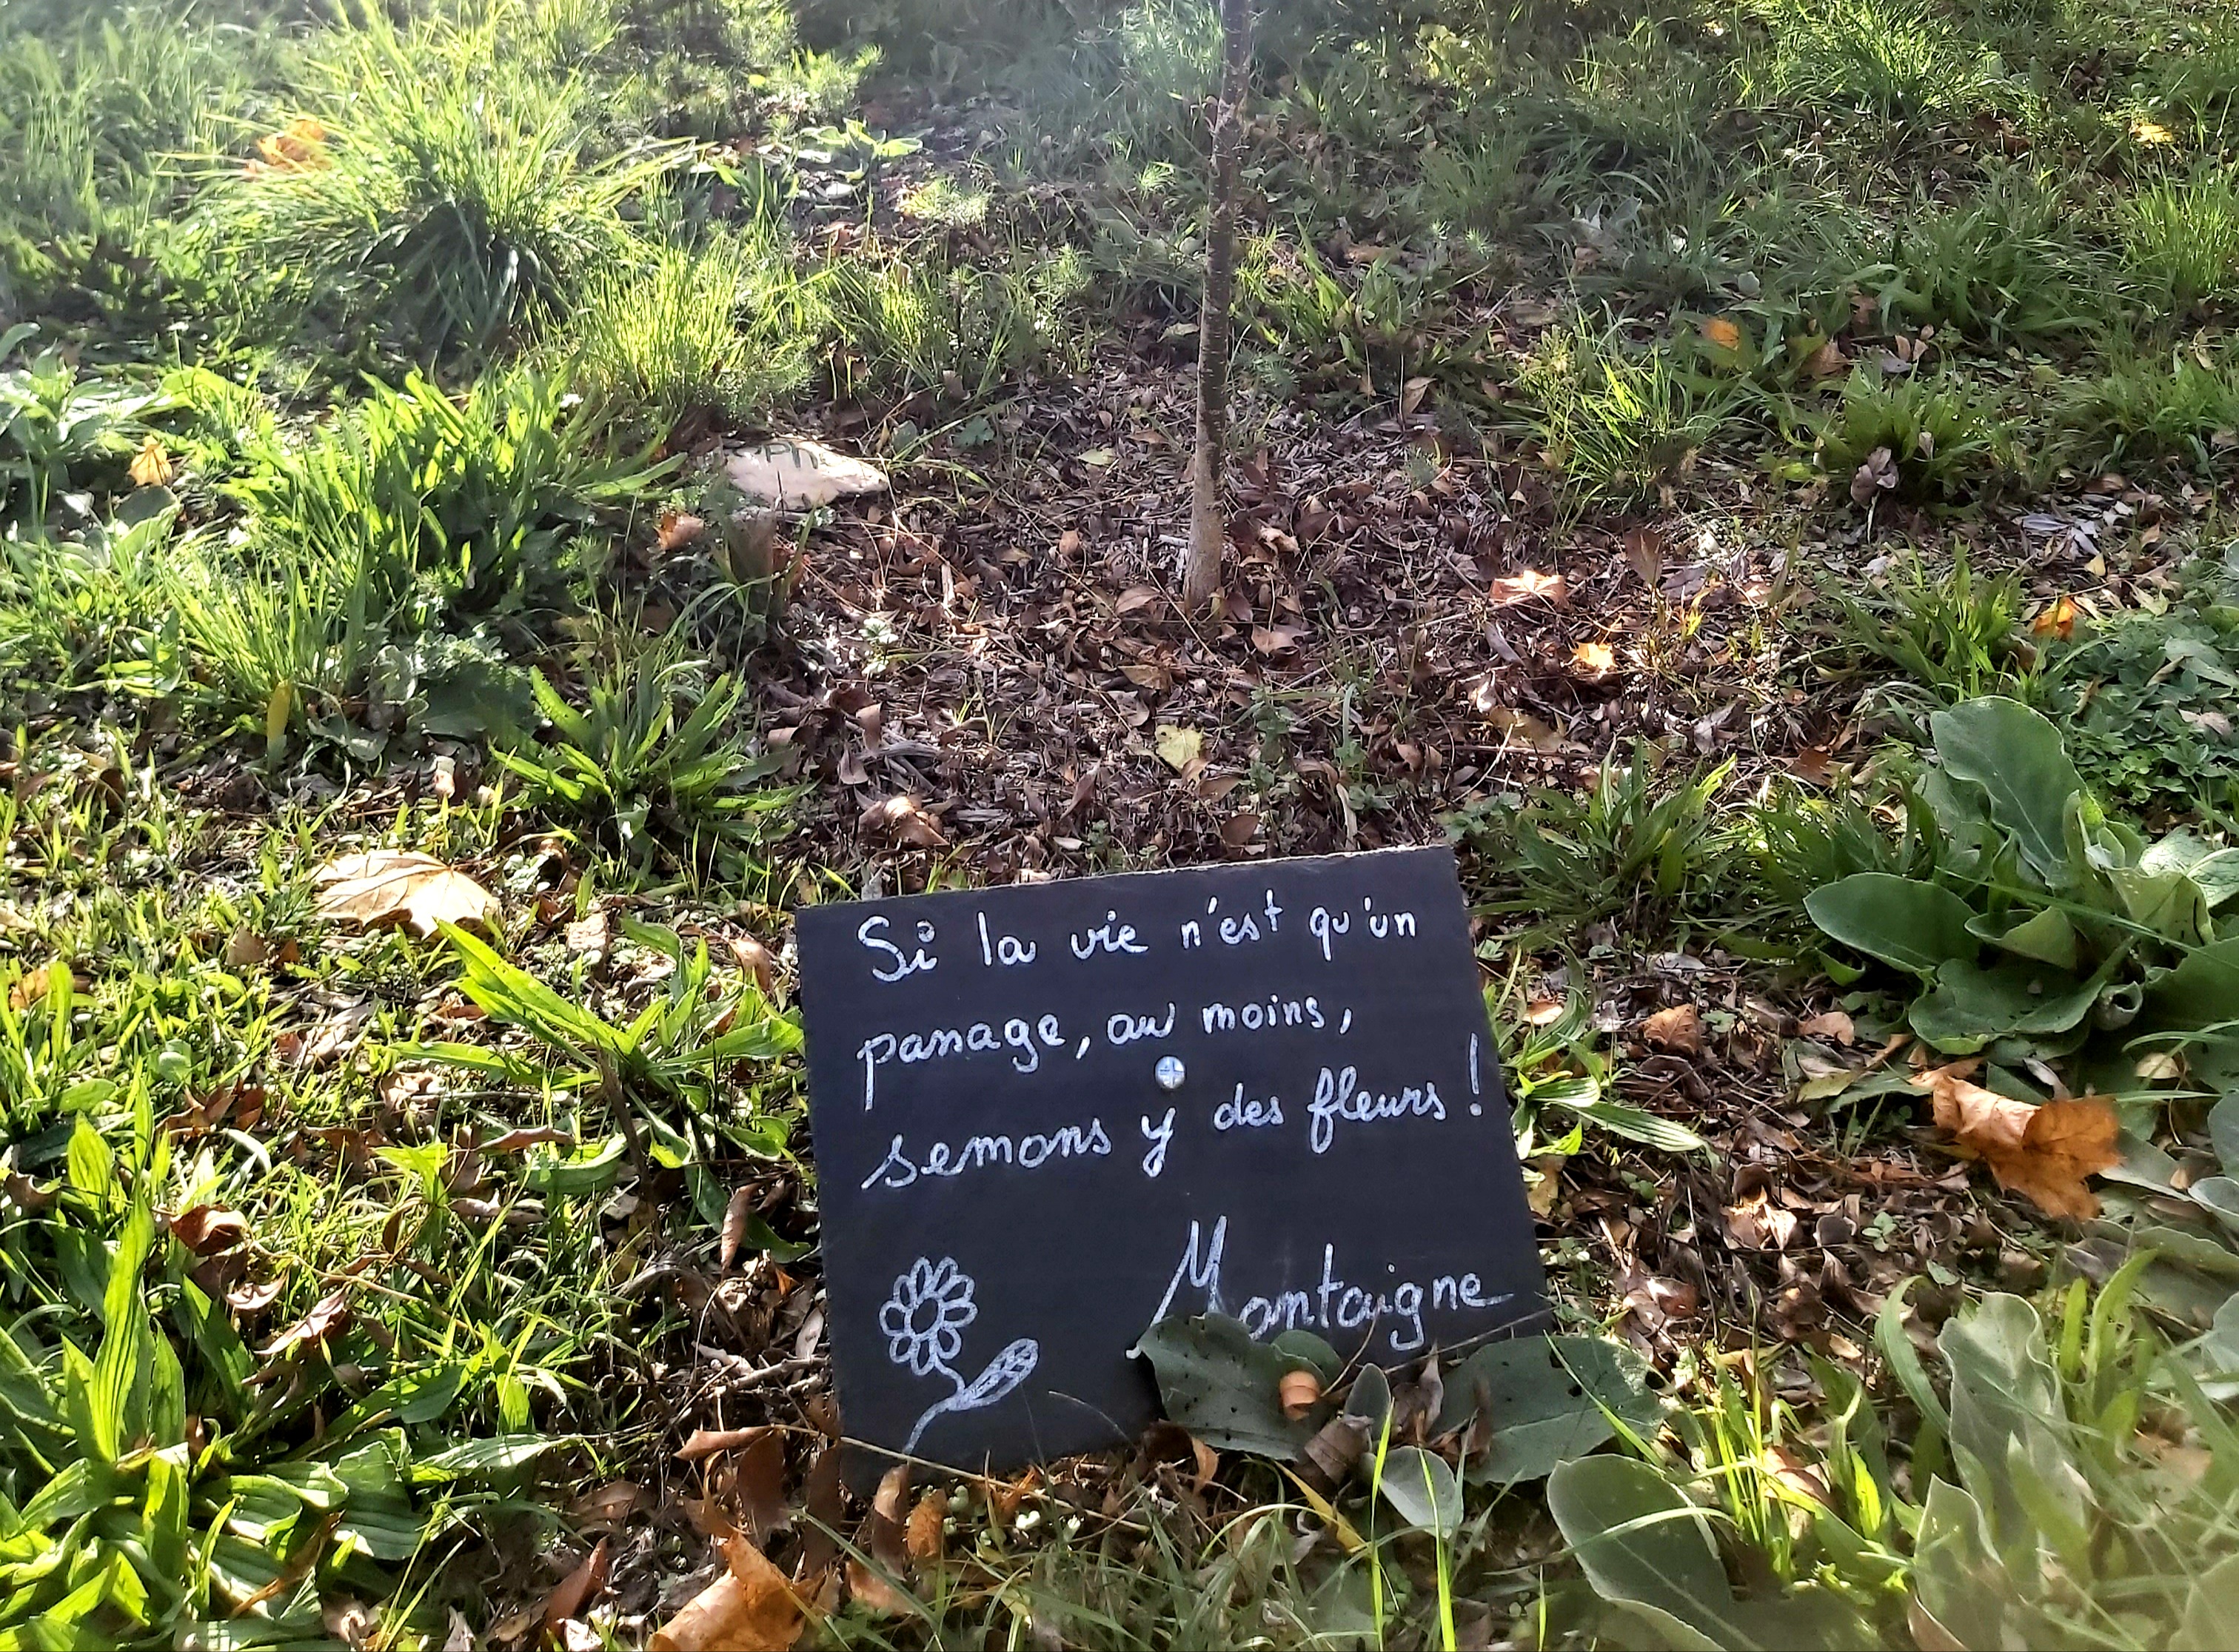 Si la vie n'est qu'un
passage, au moins,
semons y des fleurs !
Montaigne